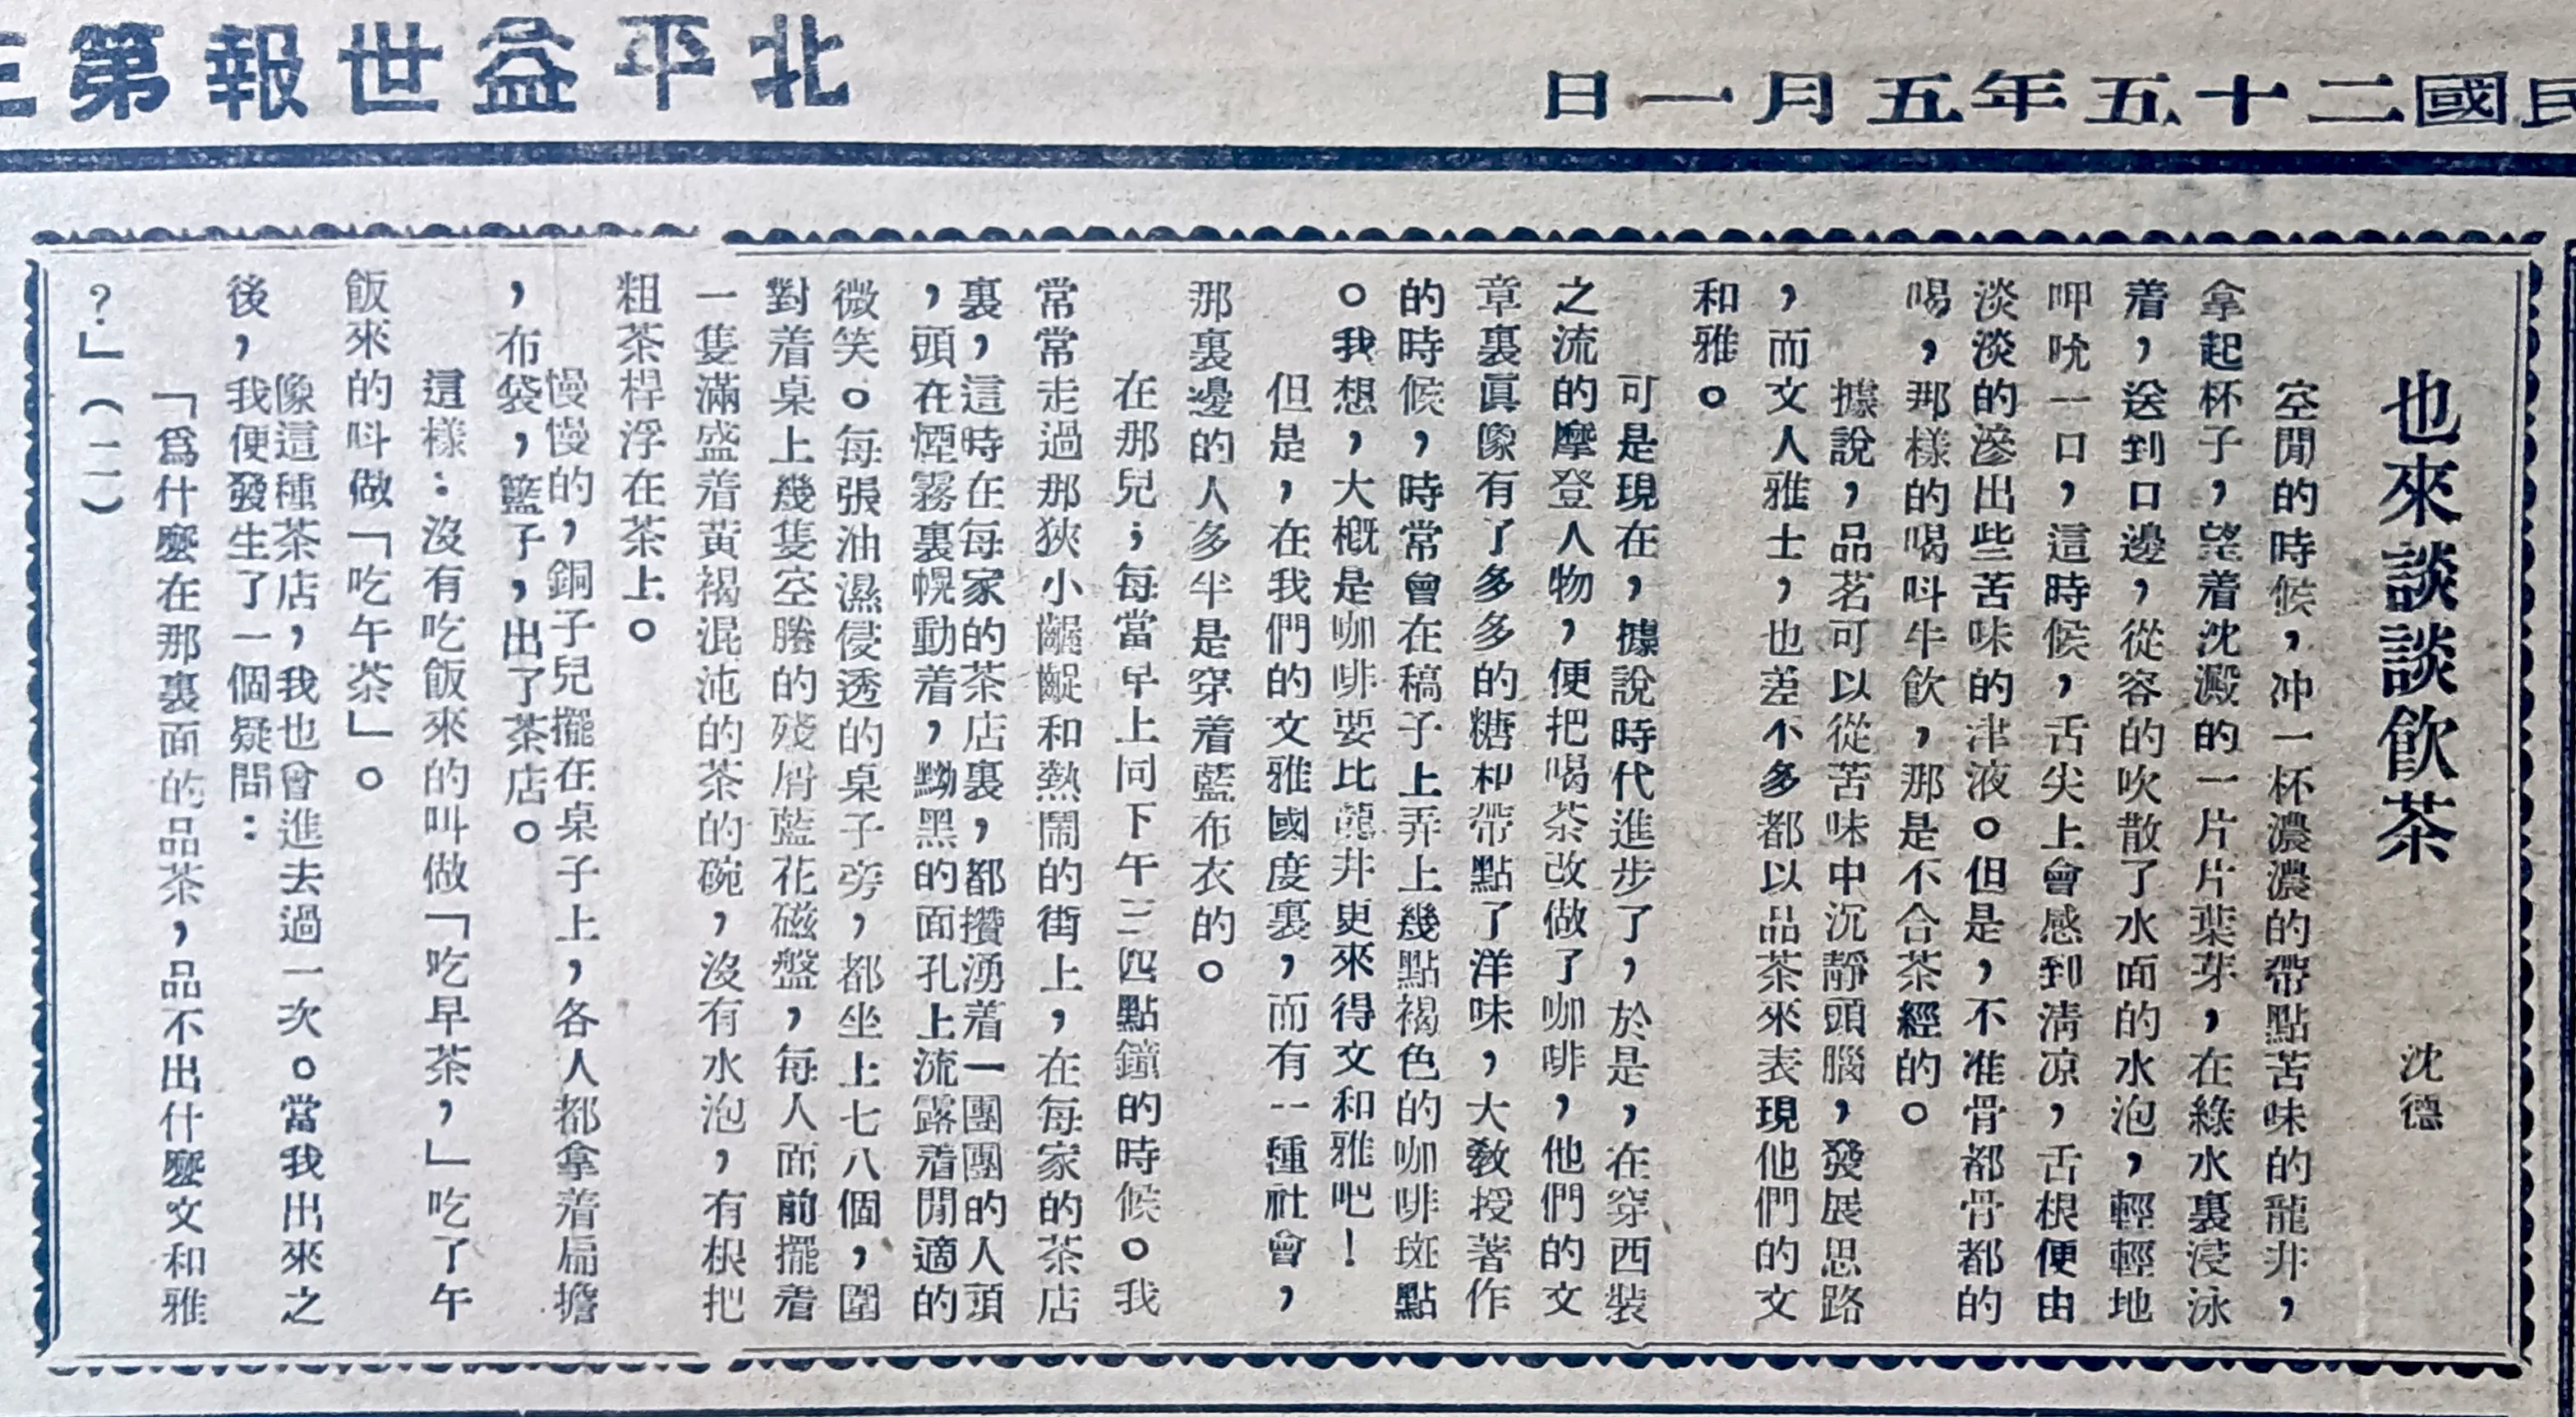 民國二十五年五月一日
北平益世報第三
也來談談飲茶
沈德
空閒的時候，冲一杯濃濃的帶點苦味的龍井，
拿起杯子，望着沈澱的一片片葉芽，在綠水裏浸泳
着，送到口邊，從容的吹散了水面的水泡，輕輕地
呷吮一口，這時候，舌尖上會感到清凉，舌根便由
淡淡的滲出些苦味的津液。但是，不准骨都骨都的
喝，那樣的喝呌牛飲，那是不合茶經的。
據說，品茗可以從苦味中沉靜頭腦，發展思路
，而文人雅士，也差不多都以品茶來表現他們的文
和雅。
可是現在，據說時代進步了，於是，在穿西裝
之流的摩登人物，便把喝茶改做了咖啡，他們的文
章裏眞像有了多多的糖和帶點了洋味，大敎授著作
的時候，時常會在稿子上弄上幾點褐色的咖啡斑點
。我想，大概是咖啡要比龍井更來得文和雅吧！
但是，在我們的文雅國度裏，而有一種社會，
那裏邊的人多半是穿着藍布衣的。
在那兒；每當早上同下午三四點鐘的時候。我
常常走過那狹小齷齪和熱鬧的街上，在每家的茶店
裏，這時在每家的茶店裏，都攢湧着一團團的人頭
，頭在煙霧裏幌動着，黝黑的面孔上流露着閒適的
微笑。每張油濕侵透的桌子旁，都坐上七八個，圍
對着桌上幾隻空賸的殘屑藍花磁盤，每人面前擺着
一隻滿盛着黃褐混沌的茶的碗，沒有水泡，有根把
粗茶桿浮在茶上。
慢慢的，銅子兒擺在桌子上，各人都拿着扁擔
，布袋，籃子，出了茶店。
這樣：沒有吃飯來的叫做「吃早茶，」吃了午
飯來的呌做「吃午茶」。
像這種茶店，我也會進去過一次。當我出來之
後，我便發生了一個疑問：
「爲什麼在那裏面的品茶，品不出什麼文和雅
？」（二）